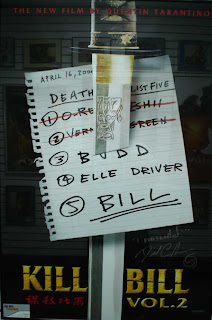 THE NEW FILM BY QUENTIN TARANTINO
APRIL 16, 200
DEATH LIST FIVE
① O-RE SHII
② VER GREEN
③ BUDD
④ ELLE DRIVER
⑤ BILL
KILL BILL
VOL.2